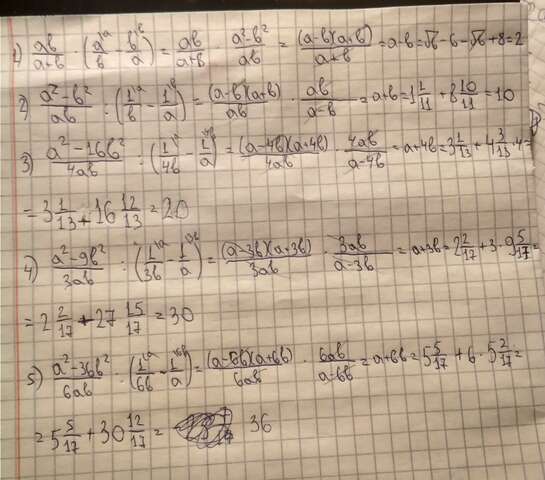 1) ab/(a+b) · (a/b - b/a) = ab/(a+b) · (a²-b²)/ab = (a-b)(a+b)/(a+b) = a-b = √6 - 6 - √6 + 8 = 2
2) (a²-b²)/ab : (1/b - 1/a) = (a-b)(a+b)/ab · ab/(a-b) = a+b = 1 1/11 + 8 10/11 = 10
3) (a²-16b²)/4ab : (1/4b - 1/a) = (a-4b)(a+4b)/4ab · 4ab/(a-4b) = a+4b = 3 1/13 + 4 3/13 · 4 =
= 3 1/13 + 16 12/13 = 20
4) (a²-9b²)/3ab : (1/3b - 1/a) = (a-3b)(a+3b)/3ab · 3ab/(a-3b) = a+3b = 2 2/17 + 3 · 9 5/17 =
= 2 2/17 + 27 15/17 = 30
5) (a²-36b²)/6ab : (1/6b - 1/a) = (a-6b)(a+6b)/6ab · 6ab/(a-6b) = a+6b = 5 5/17 + 6 · 5 2/17 =
= 5 5/17 + 30 12/17 = 36